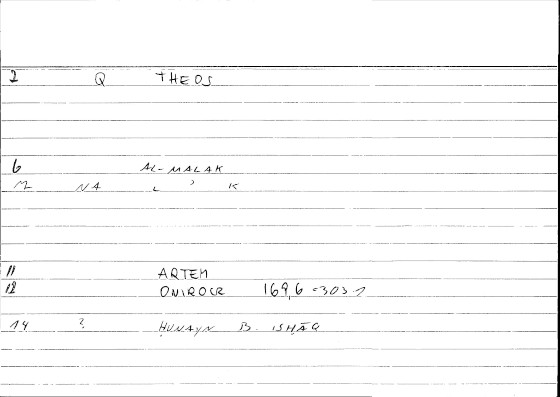 2 Q THEOS
6 AL-MALAK
M NA L ʾ K
11 ARTEM
12 ONIROCR 169,6 = 303
14 ? ḤUNAYN B. ISḤĀQ